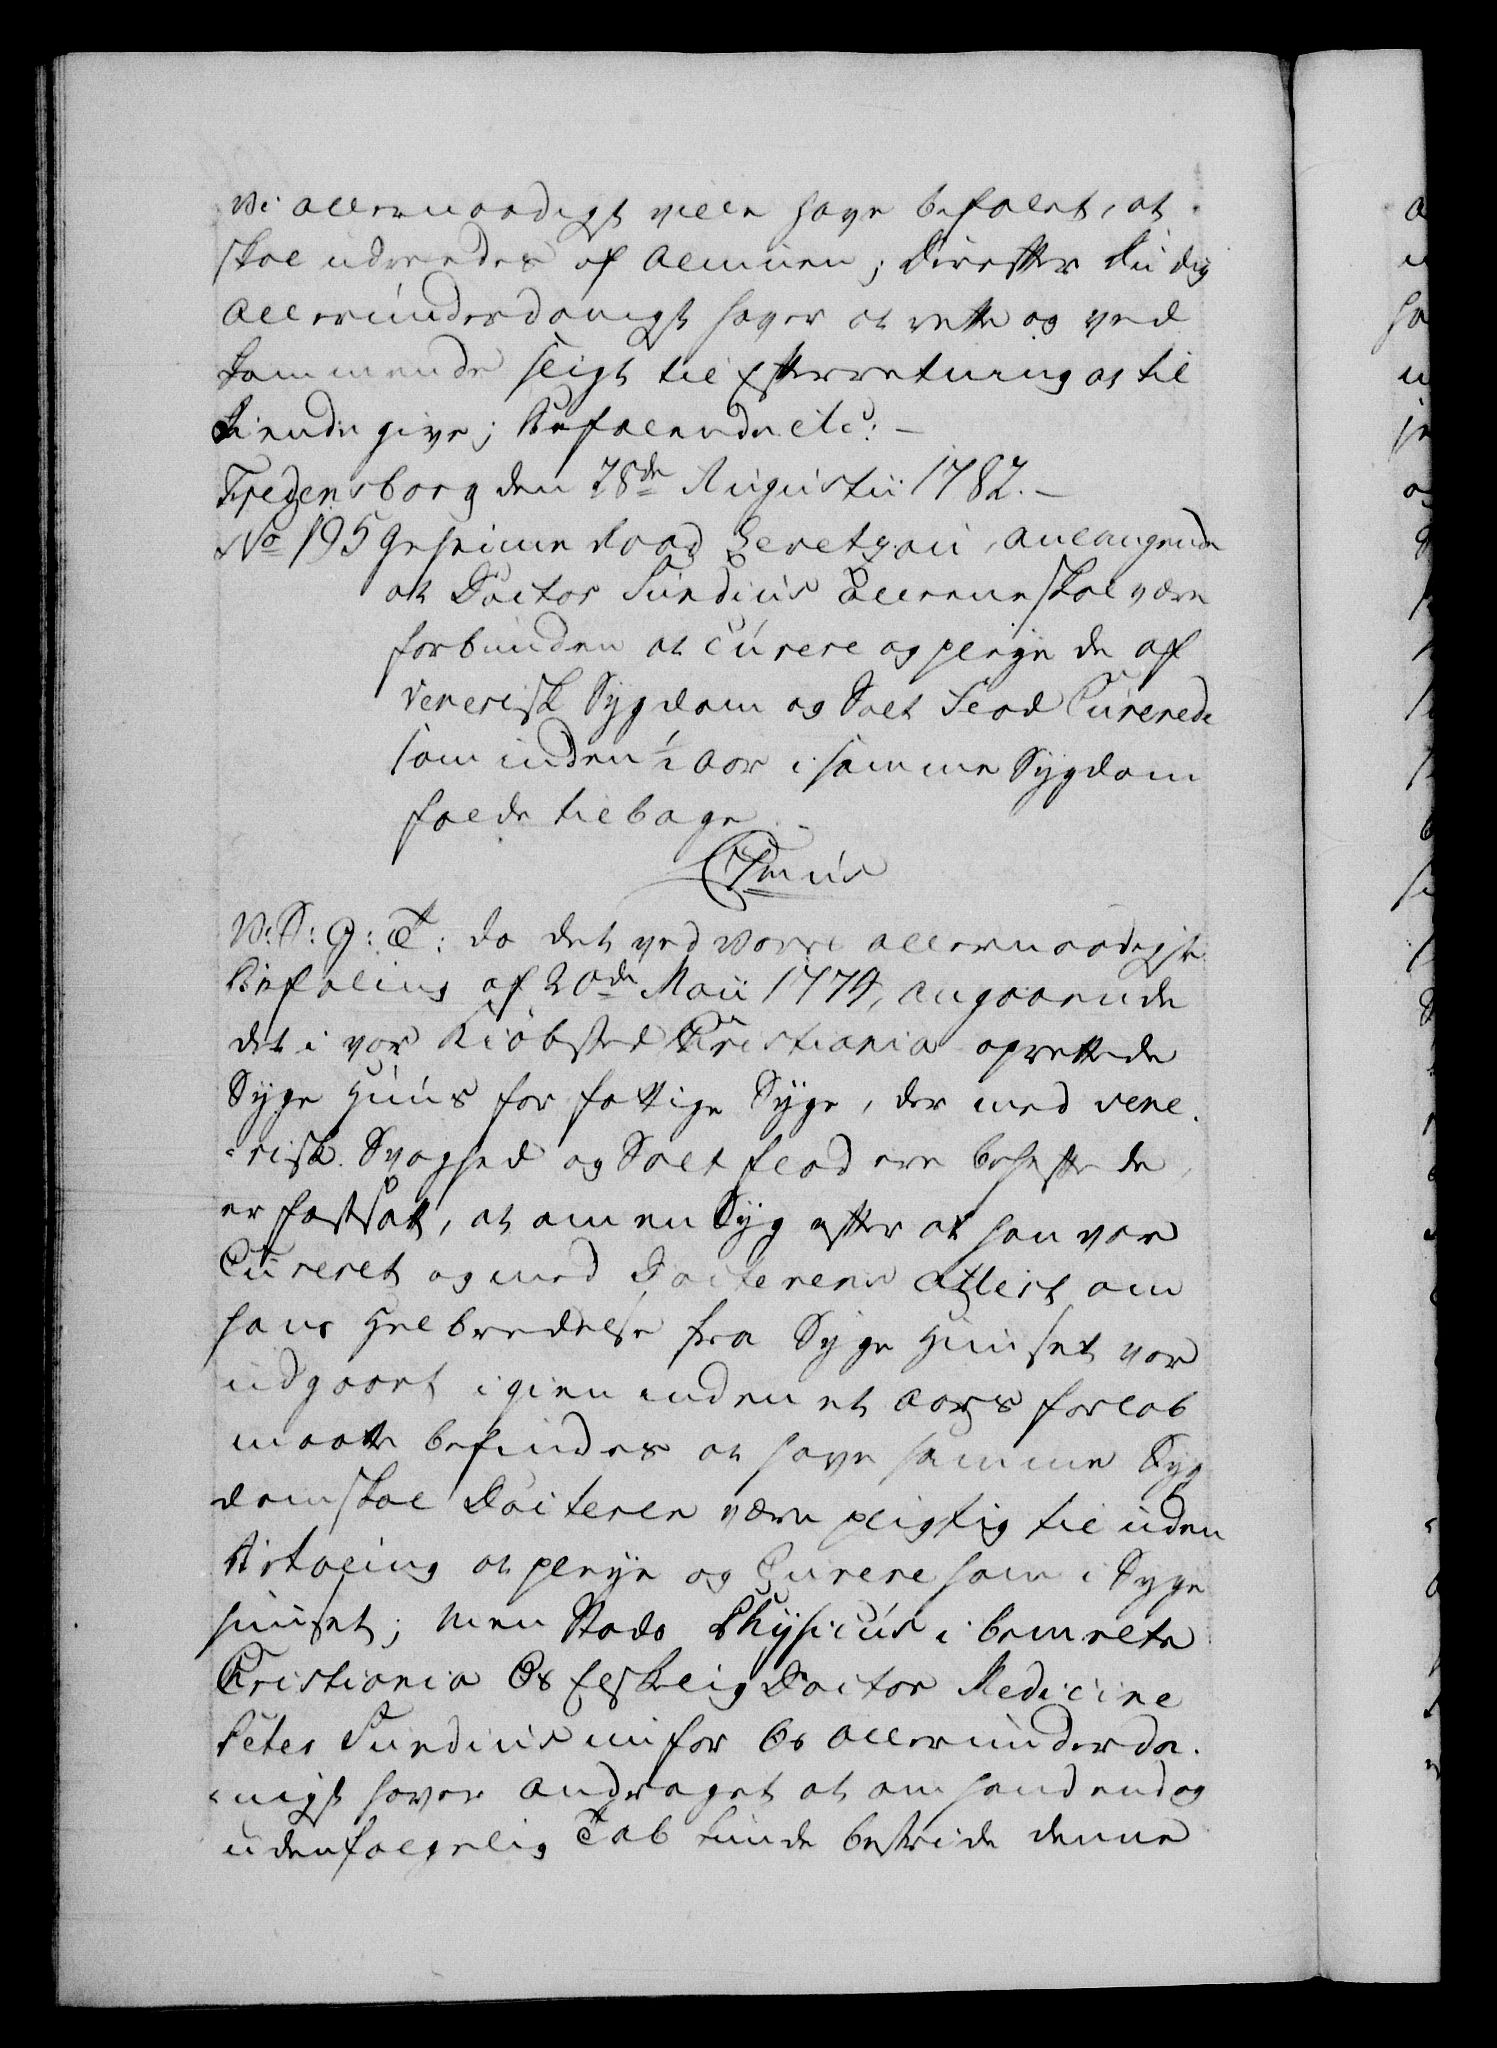 Vi allernaadigst ville have befalet, at
skal udredes af Almuen; Derefter Du dig
allerunderdanigst haver at rette og ved
kommende sligt til Efterretning at til
kiende give; Befalende etc: —
Fredensborg den 28de Augustii 1782. —
No 195 Geheime Raad Levetzau, anlangende
at Doctor Sundius allene skal være
forbunden at curere og pleye de af
venerisk Sygdom og Salt Flod Curerede
som inden ½ Aar i samme Sygdom
falde tilbage.
C 7mus
V: S: G: T: da det ved Vores allernaadigste
Befaling af 20de Maii 1774, angaaende
det i vor Kiøbsted Christiania oprettede
Syge Huus for fattige Syge, der med vene-
-risk Svaghed og Salt flod ere behæftede,
er fastsat, at om en Syg efter at han var
Cureret og med Docterens Attest om
hans Helbredelse fra Syge Huuset var
udgaaet igien inden et Aars forløb
maatte befindes at have samme Syg
dom skal Docteren være pligtig til uden
Betaling at pleye og Curere ham i Syge
huuset; men Stads Physicus i bemelte
Christiania Os Elskelig Doctor Medicine
Peter Sundius nu for Os allerunderda-
-nigst haver andraget at om hand endog
uden følgelig Tab kunde bestride denne